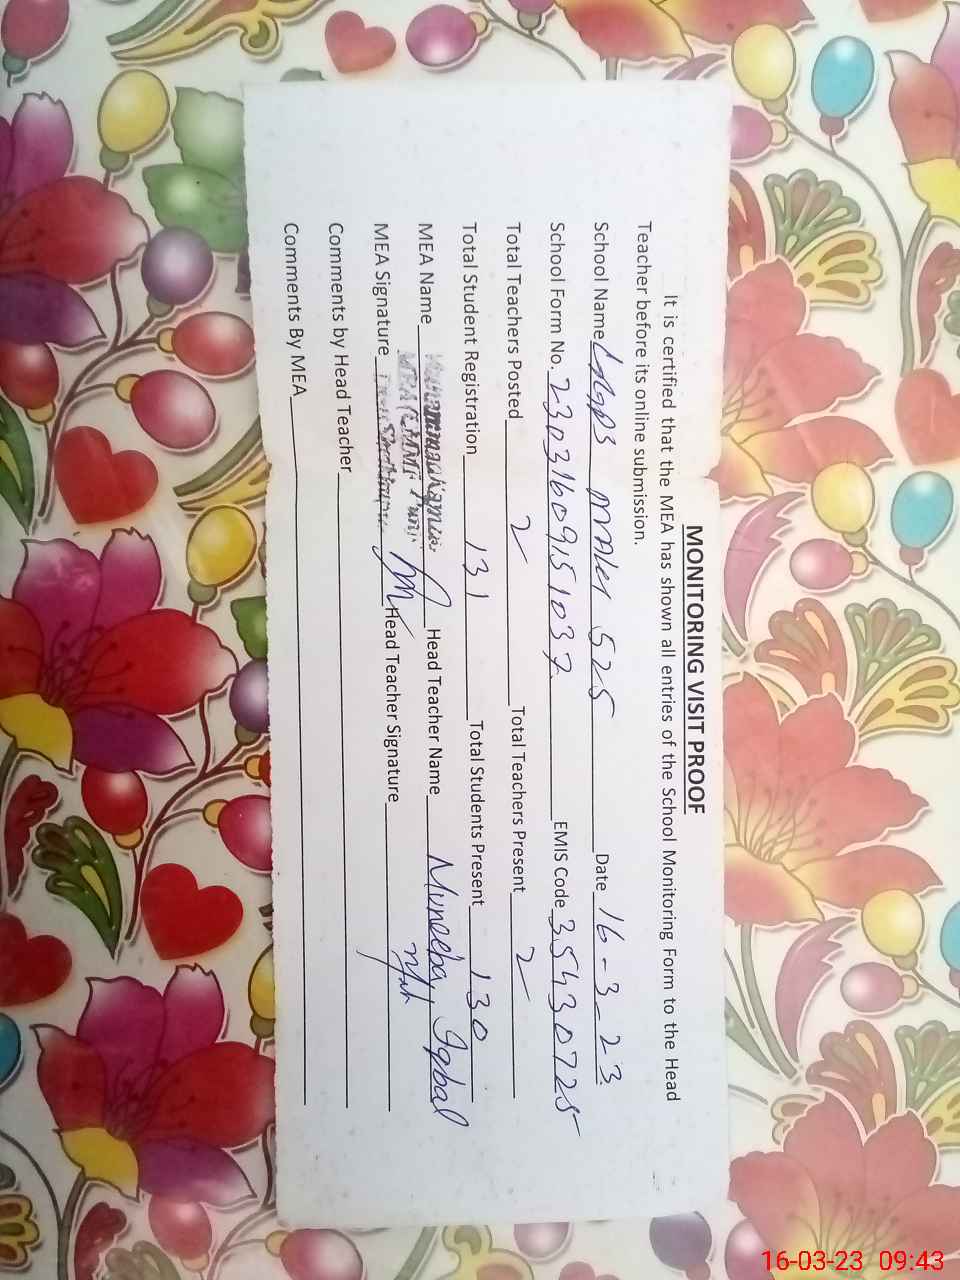 MONITORING VISIT PROOF
It is certified that the MEA has shown all entries of the School Monitoring Form to the Head
Teacher before its online submission.
School Name 525 Date 16-3-23
School Form No. 23031609151037 EMIS Code 35430725
Total Teachers Posted 2 Total Teachers Present 2
Total Student Registration 131 Total Students Present 130
MEA Name Head Teacher Name Muneeba Iqbal
MEA Signature Head Teacher Signature
Comments by Head Teacher
Comments By MEA
16-03-23 09:43